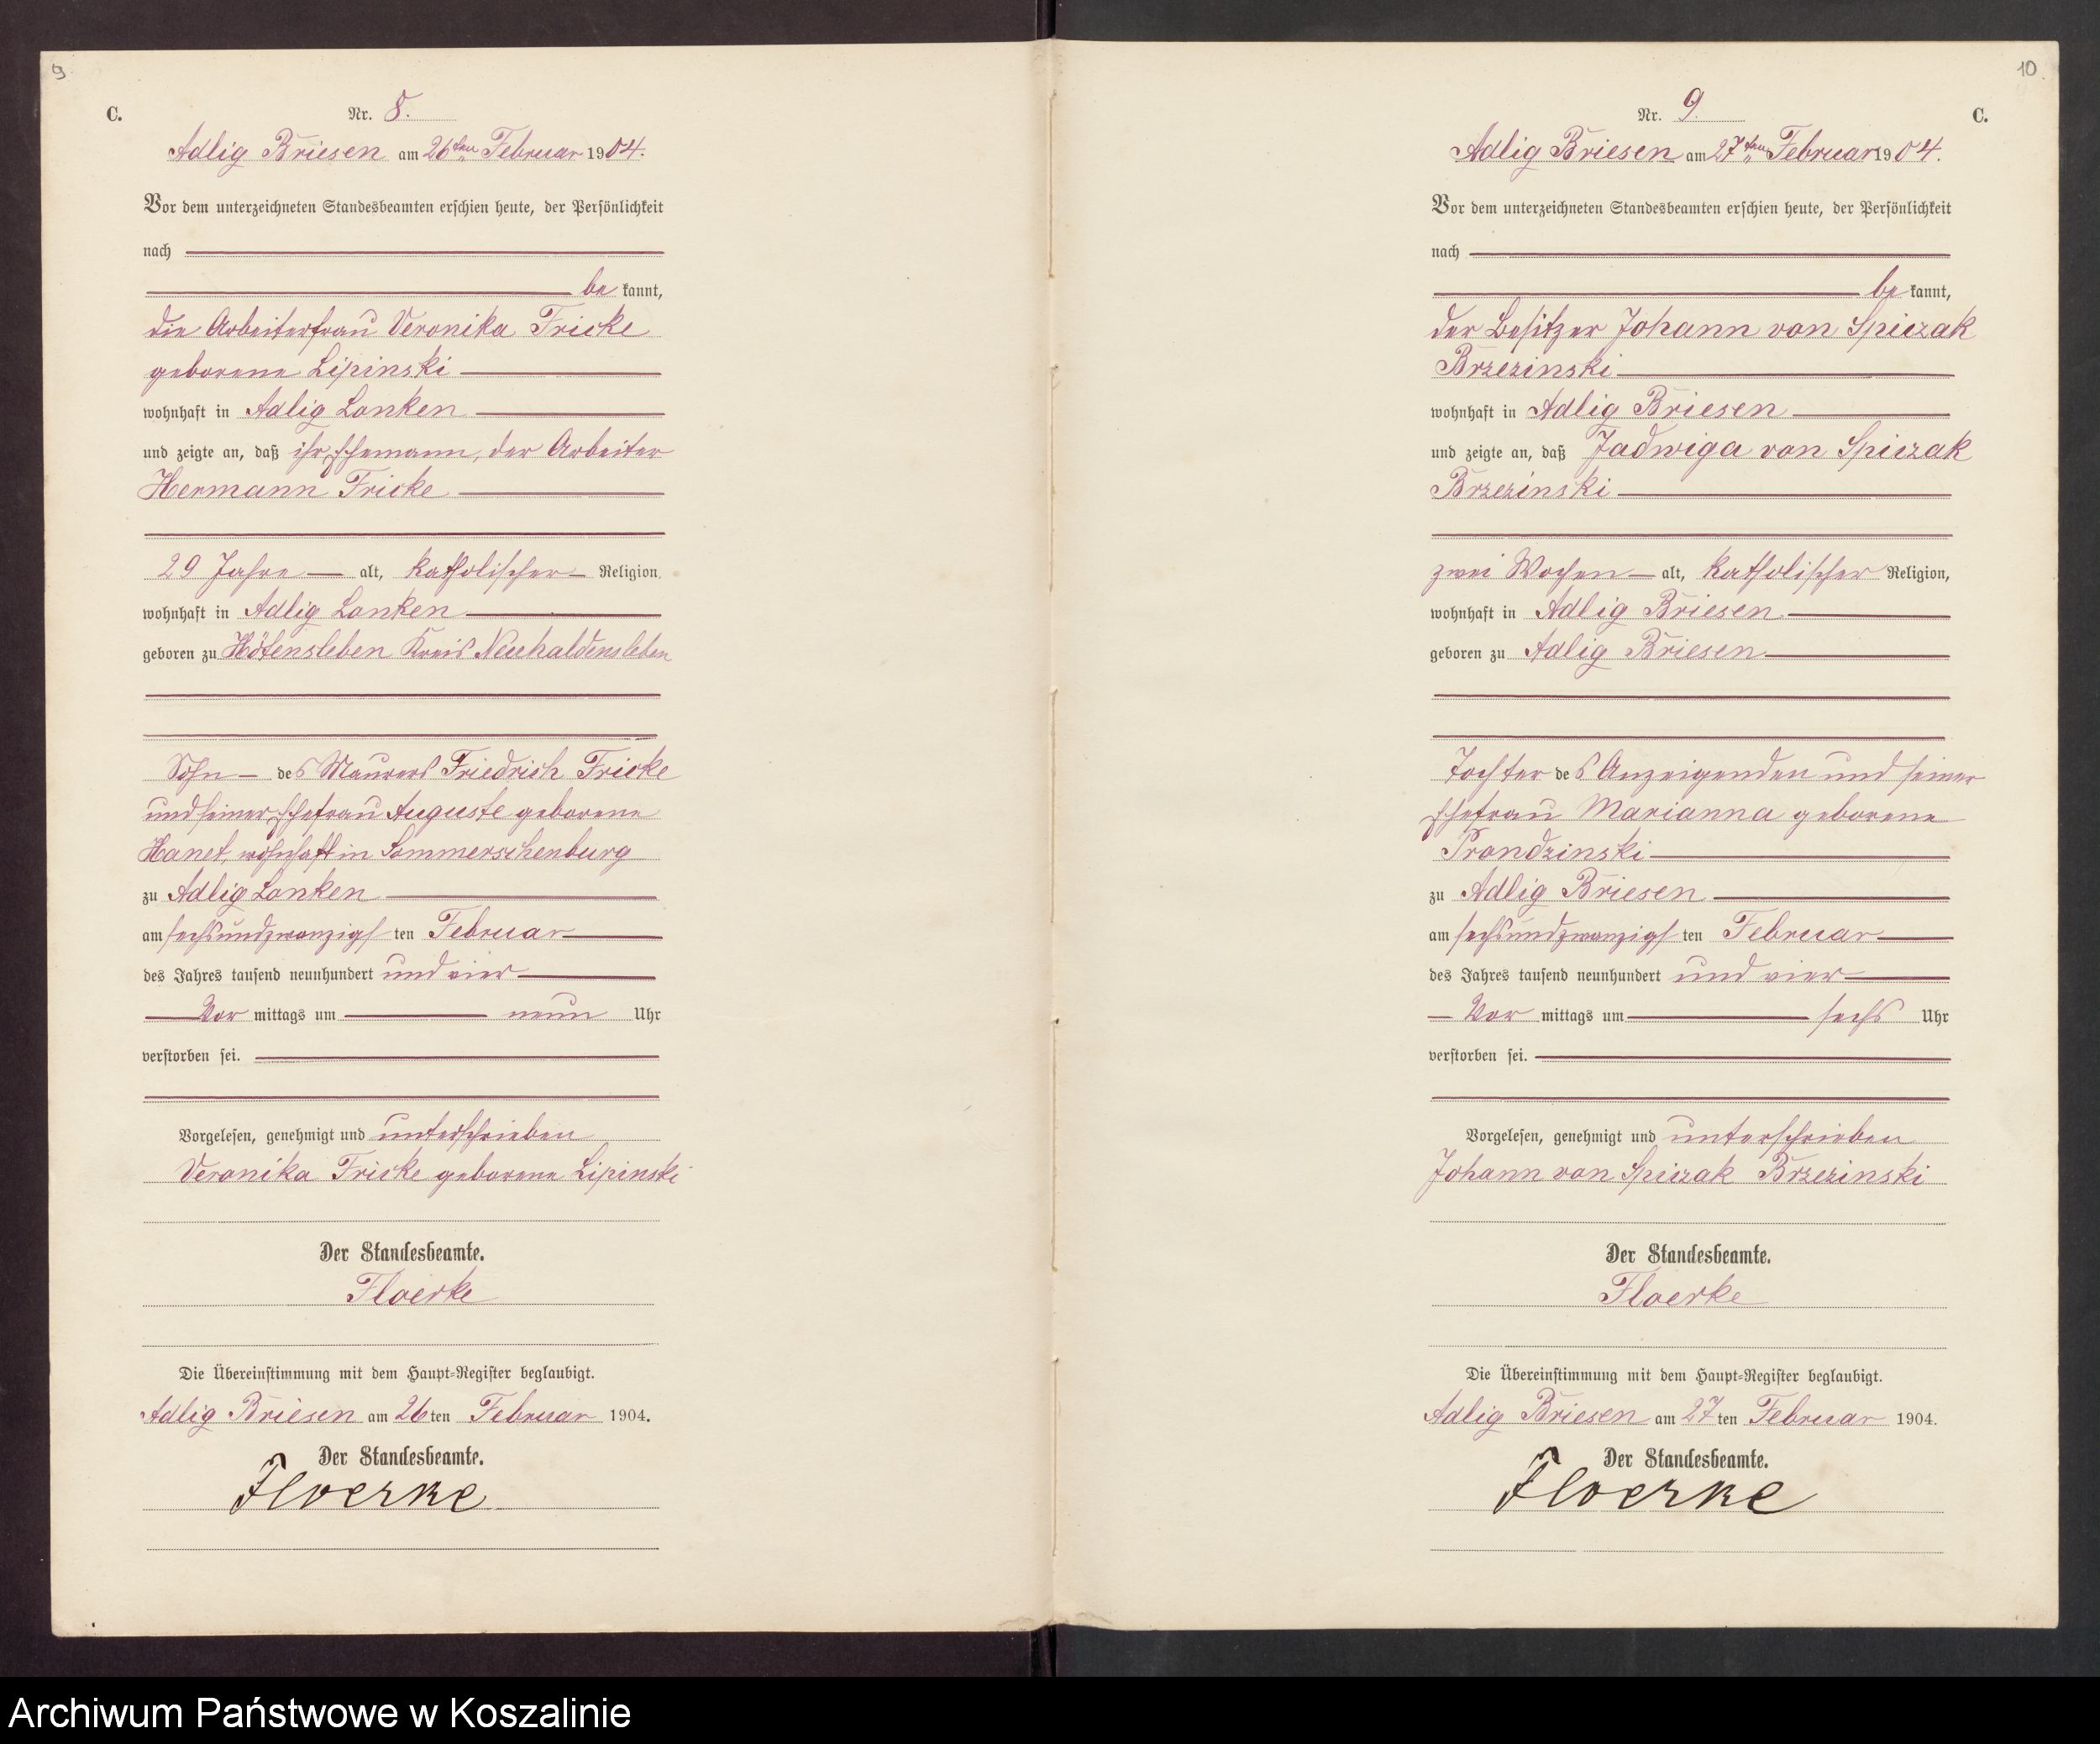 9
C.
Nr. 8.
Adlig Briesen am 26ten Februar 1904.
Vor dem unterzeichneten Standesbeamten erschien heute, der Persönlichkeit
nach
be kannt,
die Arbeiterfrau Veronika Fricke
geborene Lipinski
wohnhaft in Adlig Lonken
und zeigte an, daß ihr Ehemann, der Arbeiter
Hermann Fricke
29 Jahre alt, katholischer Religion,
wohnhaft in Adlig Lonken
geboren zu Hötensleben Kreis Neuhaldensleben
Sohn des Maurers Friedrich Fricke
und seiner Ehefrau Auguste geborene
Hanet, wohnhaft in Sommerschenburg
zu Adlig Lonken
am sechsundzwanzigsten Februar
des Jahres tausend neunhundert und vier
Vor mittags um neun Uhr
verstorben sei.
Vorgelesen, genehmigt und unterschrieben
Veronika Fricke geborene Lipinski
Der Standesbeamte.
Floerke
Die Übereinstimmung mit dem Haupt-Register beglaubigt.
Adlig Briesen am 26ten Februar 1904.
Der Standesbeamte.
Floerke
10
Nr. 9.
C.
Adlig Briesen am 27ten Februar 1904.
Vor dem unterzeichneten Standesbeamten erschien heute, der Persönlichkeit
nach
be kannt,
der Besitzer Johann von Spiczak
Brzezinski
wohnhaft in Adlig Briesen
und zeigte an, daß Jadwiga von Spiczak
Brzezinski
zwei Wochen alt, katholischer Religion,
wohnhaft in Adlig Briesen
geboren zu Adlig Briesen
Tochter des Anzeigenden und seiner
Ehefrau Marianna geborene
Prondzinski
zu Adlig Briesen
am sechsundzwanzigsten Februar
des Jahres tausend neunhundert und vier
Vor mittags um sechs Uhr
verstorben sei.
Vorgelesen, genehmigt und unterschrieben
Johann von Spiczak Brzezinski
Der Standesbeamte.
Floerke
Die Übereinstimmung mit dem Haupt-Register beglaubigt.
Adlig Briesen am 27ten Februar 1904.
Der Standesbeamte.
Floerke
Archiwum Państwowe w Koszalinie